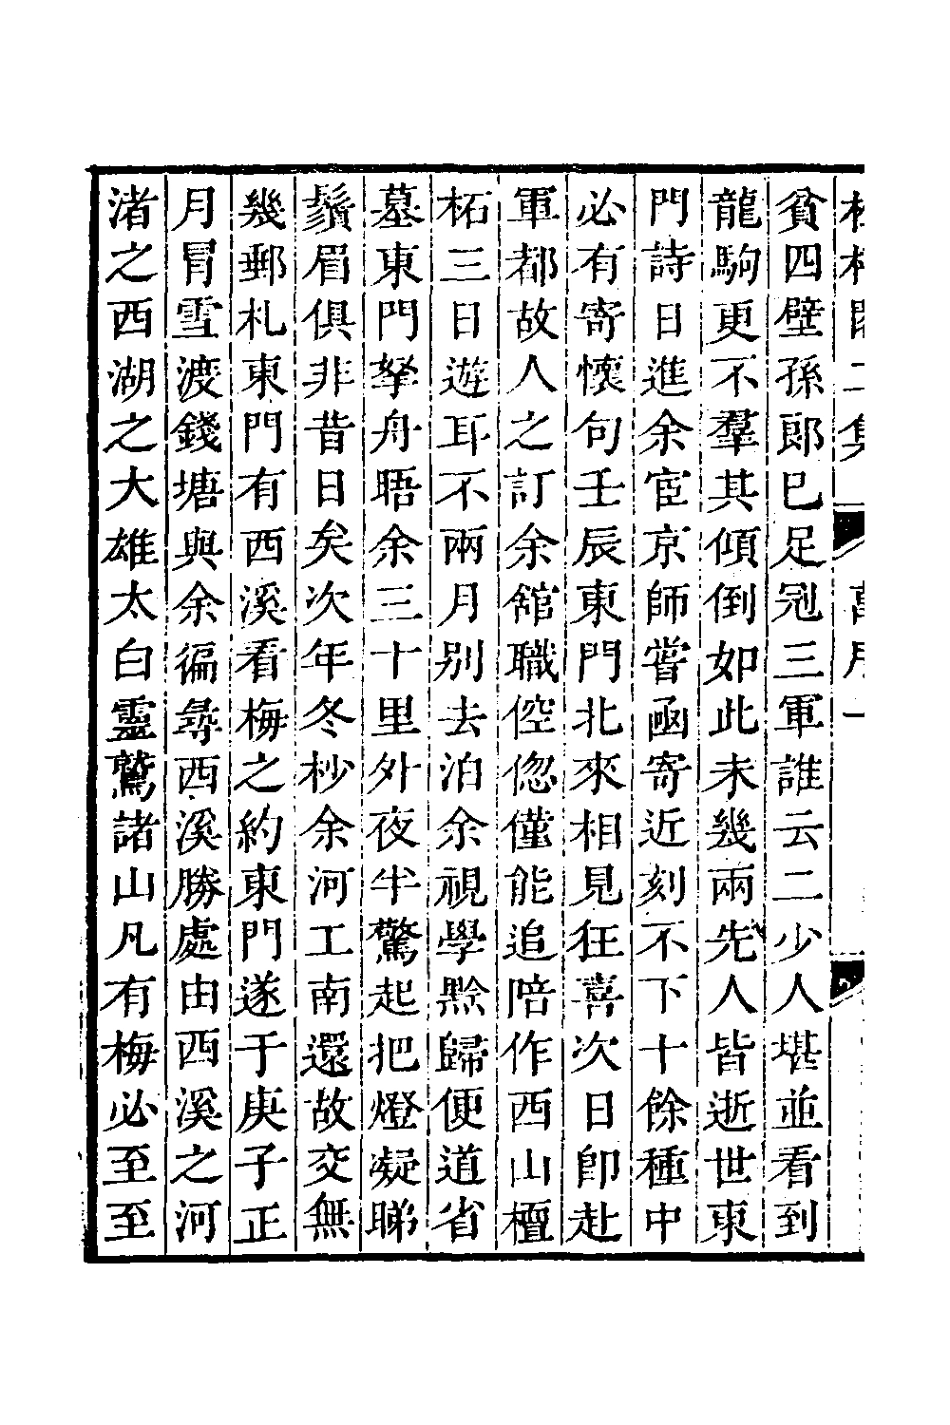 貧四壁孫郎已足冠三軍誰云二少人堪並看到
龍駒更不羣其傾倒如此未幾兩先人皆逝世東
門詩日進余宦京師嘗函寄近刻不下十餘種中
必有寄懷句壬辰東門北來相見狂喜次日卽赴
軍都故人之訂余舘職倥偬僅能追陪作西山檀
柘三日遊耳不兩月别去泊余視學黔歸便道省
墓東門拏舟晤余三十里外夜半驚起把燈凝睇
鬚眉俱非昔日矣次年冬杪余河工南還故交無
幾郵札東門有西溪看梅之約東門遂于庚子正
月冐雪渡錢塘與余徧尋西溪勝處由西溪之河
渚之西湖之大雄太白靈鷲諸山凡有梅必至至